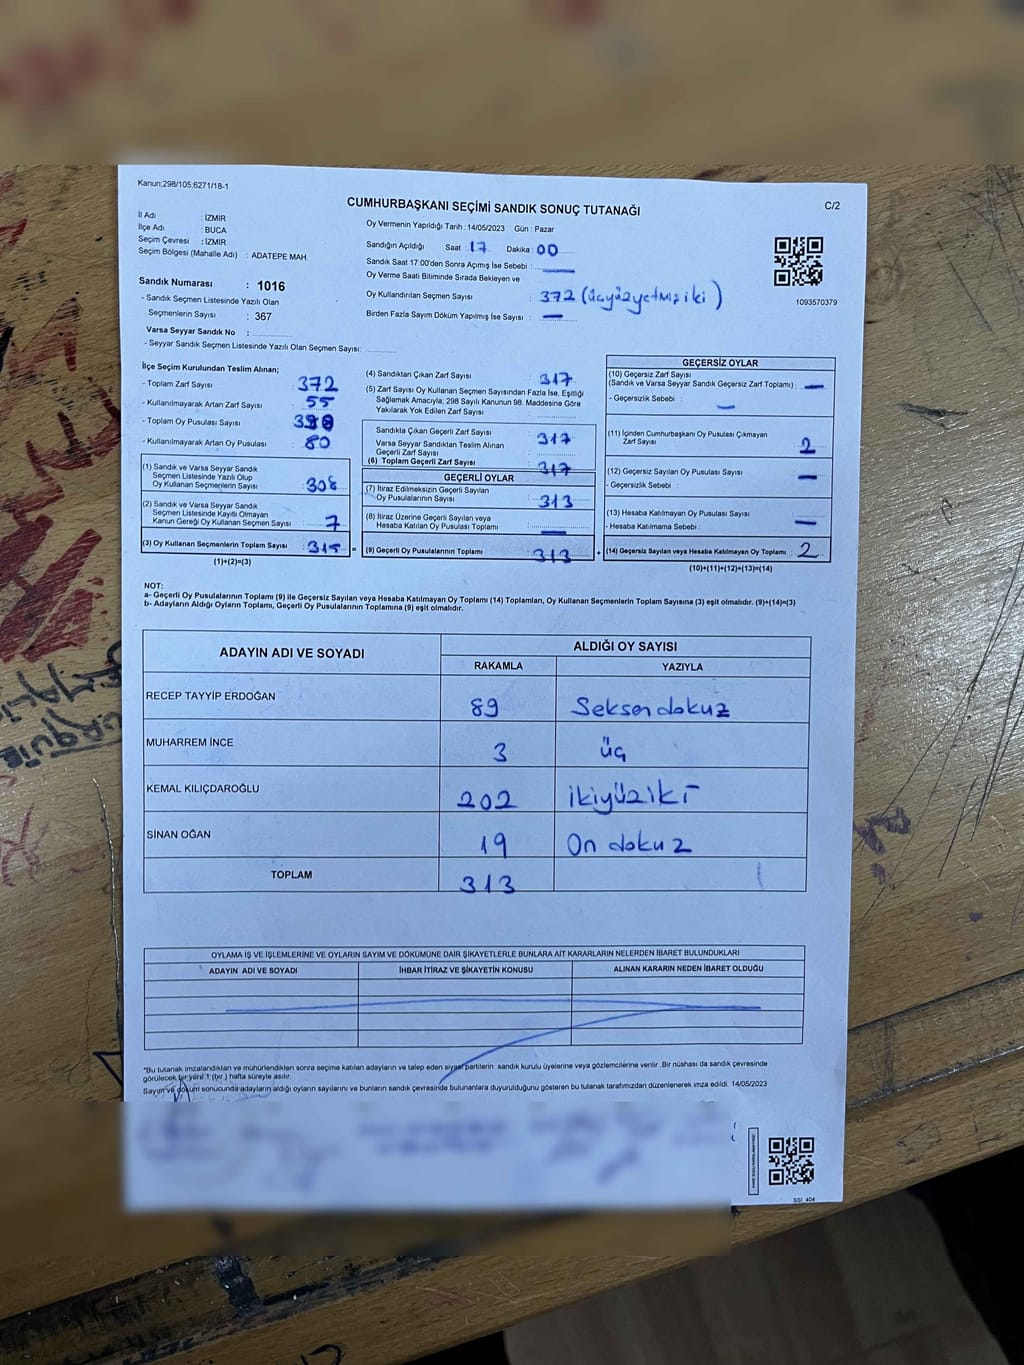 Kanun:298/105;6271/18-1
CUMHURBAŞKANI SEÇİMİ SANDIK SONUÇ TUTANAĞI
C/2
İl Adı : İZMİR
İlçe Adı : BUCA
Seçim Çevresi : İZMİR
Seçim Bölgesi (Mahalle Adı) : ADATEPE MAH.
Oy Vermenin Yapıldığı Tarih : 14/05/2023 Gün : Pazar
Sandığın Açıldığı Saat : 17 Dakika : 00
Sandık Saat 17:00'den Sonra Açımış İse Sebebi : —
Oy Verme Saati Bitiminde Sırada Bekleyen ve
Oy Kullandırılan Seçmen Sayısı : 372 (üçyüzyetmişiki)
Birden Fazla Sayım Döküm Yapılmış İse Sayısı : —
1093570379
Sandık Numarası : 1016
- Sandık Seçmen Listesinde Yazılı Olan
Seçmenlerin Sayısı : 367
Varsa Seyyar Sandık No :
- Seyyar Sandık Seçmen Listesinde Yazılı Olan Seçmen Sayısı:
İlçe Seçim Kurulundan Teslim Alınan;
- Toplam Zarf Sayısı : 372
- Kullanılmayarak Artan Zarf Sayısı : 55
- Toplam Oy Pusulası Sayısı :
- Kullanılmayarak Artan Oy Pusulası : 80
(1) Sandık ve Varsa Seyyar Sandık
Seçmen Listesinde Yazılı Olup
Oy Kullanan Seçmenlerin Sayısı : 308
(2) Sandık ve Varsa Seyyar Sandık
Seçmen Listesinde Kayıtlı Olmayan
Kanun Gereği Oy Kullanan Seçmen Sayısı : 7
(3) Oy Kullanan Seçmenlerin Toplam Sayısı : 315
(1)+(2)=(3)
(4) Sandıktan Çıkan Zarf Sayısı : 317
(5) Zarf Sayısı Oy Kullanan Seçmen Sayısından Fazla İse, Eşitliği
Sağlamak Amacıyla; 298 Sayılı Kanunun 98. Maddesine Göre
Yakılarak Yok Edilen Zarf Sayısı :
Sandıkta Çıkan Geçerli Zarf Sayısı : 317
Varsa Seyyar Sandıktan Teslim Alınan
Geçerli Zarf Sayısı :
(6) Toplam Geçerli Zarf Sayısı : 317
GEÇERLİ OYLAR
(7) İtiraz Edilmeksizin Geçerli Sayılan
Oy Pusulalarının Sayısı : 313
(8) İtiraz Üzerine Geçerli Sayılan veya
Hesaba Katılan Oy Pusulası Toplamı : —
= (9) Geçerli Oy Pusulalarının Toplamı : 313 +
GEÇERSİZ OYLAR
(10) Geçersiz Zarf Sayısı
(Sandık ve Varsa Seyyar Sandık Geçersiz Zarf Toplamı) : —
- Geçersizlik Sebebi : —
(11) İçinden Cumhurbaşkanı Oy Pusulası Çıkmayan
Zarf Sayısı : 2
(12) Geçersiz Sayılan Oy Pusulası Sayısı : —
- Geçersizlik Sebebi :
(13) Hesaba Katılmayan Oy Pusulası Sayısı
- Hesaba Katılmama Sebebi : —
(14) Geçersiz Sayılan veya Hesaba Katılmayan Oy Toplamı : 2
(10)+(11)+(12)+(13)=(14)
NOT:
a- Geçerli Oy Pusulalarının Toplamı (9) ile Geçersiz Sayılan veya Hesaba Katılmayan Oy Toplamı (14) Toplamları, Oy Kullanan Seçmenlerin Toplam Sayısına (3) eşit olmalıdır. (9)+(14)=(3)
b- Adayların Aldığı Oyların Toplamı, Geçerli Oy Pusulalarının Toplamına (9) eşit olmalıdır.
ADAYIN ADI VE SOYADI ALDIĞI OY SAYISI
RAKAMLA YAZIYLA
RECEP TAYYİP ERDOĞAN 89 Seksen dokuz
MUHARREM İNCE 3 üç
KEMAL KILIÇDAROĞLU 202 ikiyüziki
SİNAN OĞAN 19 On dokuz
TOPLAM 313
OYLAMA İŞ VE İŞLEMLERİNE VE OYLARIN SAYIM VE DÖKÜMÜNE DAİR ŞİKAYETLERLE BUNLARA AİT KARARLARIN NELERDEN İBARET BULUNDUKLARI
ADAYIN ADI VE SOYADI İHBAR İTİRAZ VE ŞİKAYETİN KONUSU ALINAN KARARIN NEDEN İBARET OLDUĞU
*Bu tutanak imzalandıktan ve mühürlendikten sonra seçime katılan adayların ve talep eden siyasi partilerin sandık kurulu üyelerine veya gözlemcilerine verilir. Bir nüshası da sandık çevresinde
görülecek bir yere 1 (bir) hafta süreyle asılır.
Sayım ve döküm sonucunda adayların aldığı oyların sayılarını ve bunların sandık çevresinde bulunanlara duyurulduğunu gösteren bu tutanak tarafımızdan düzenlenerek imza edildi. 14/05/2023
SSI_404